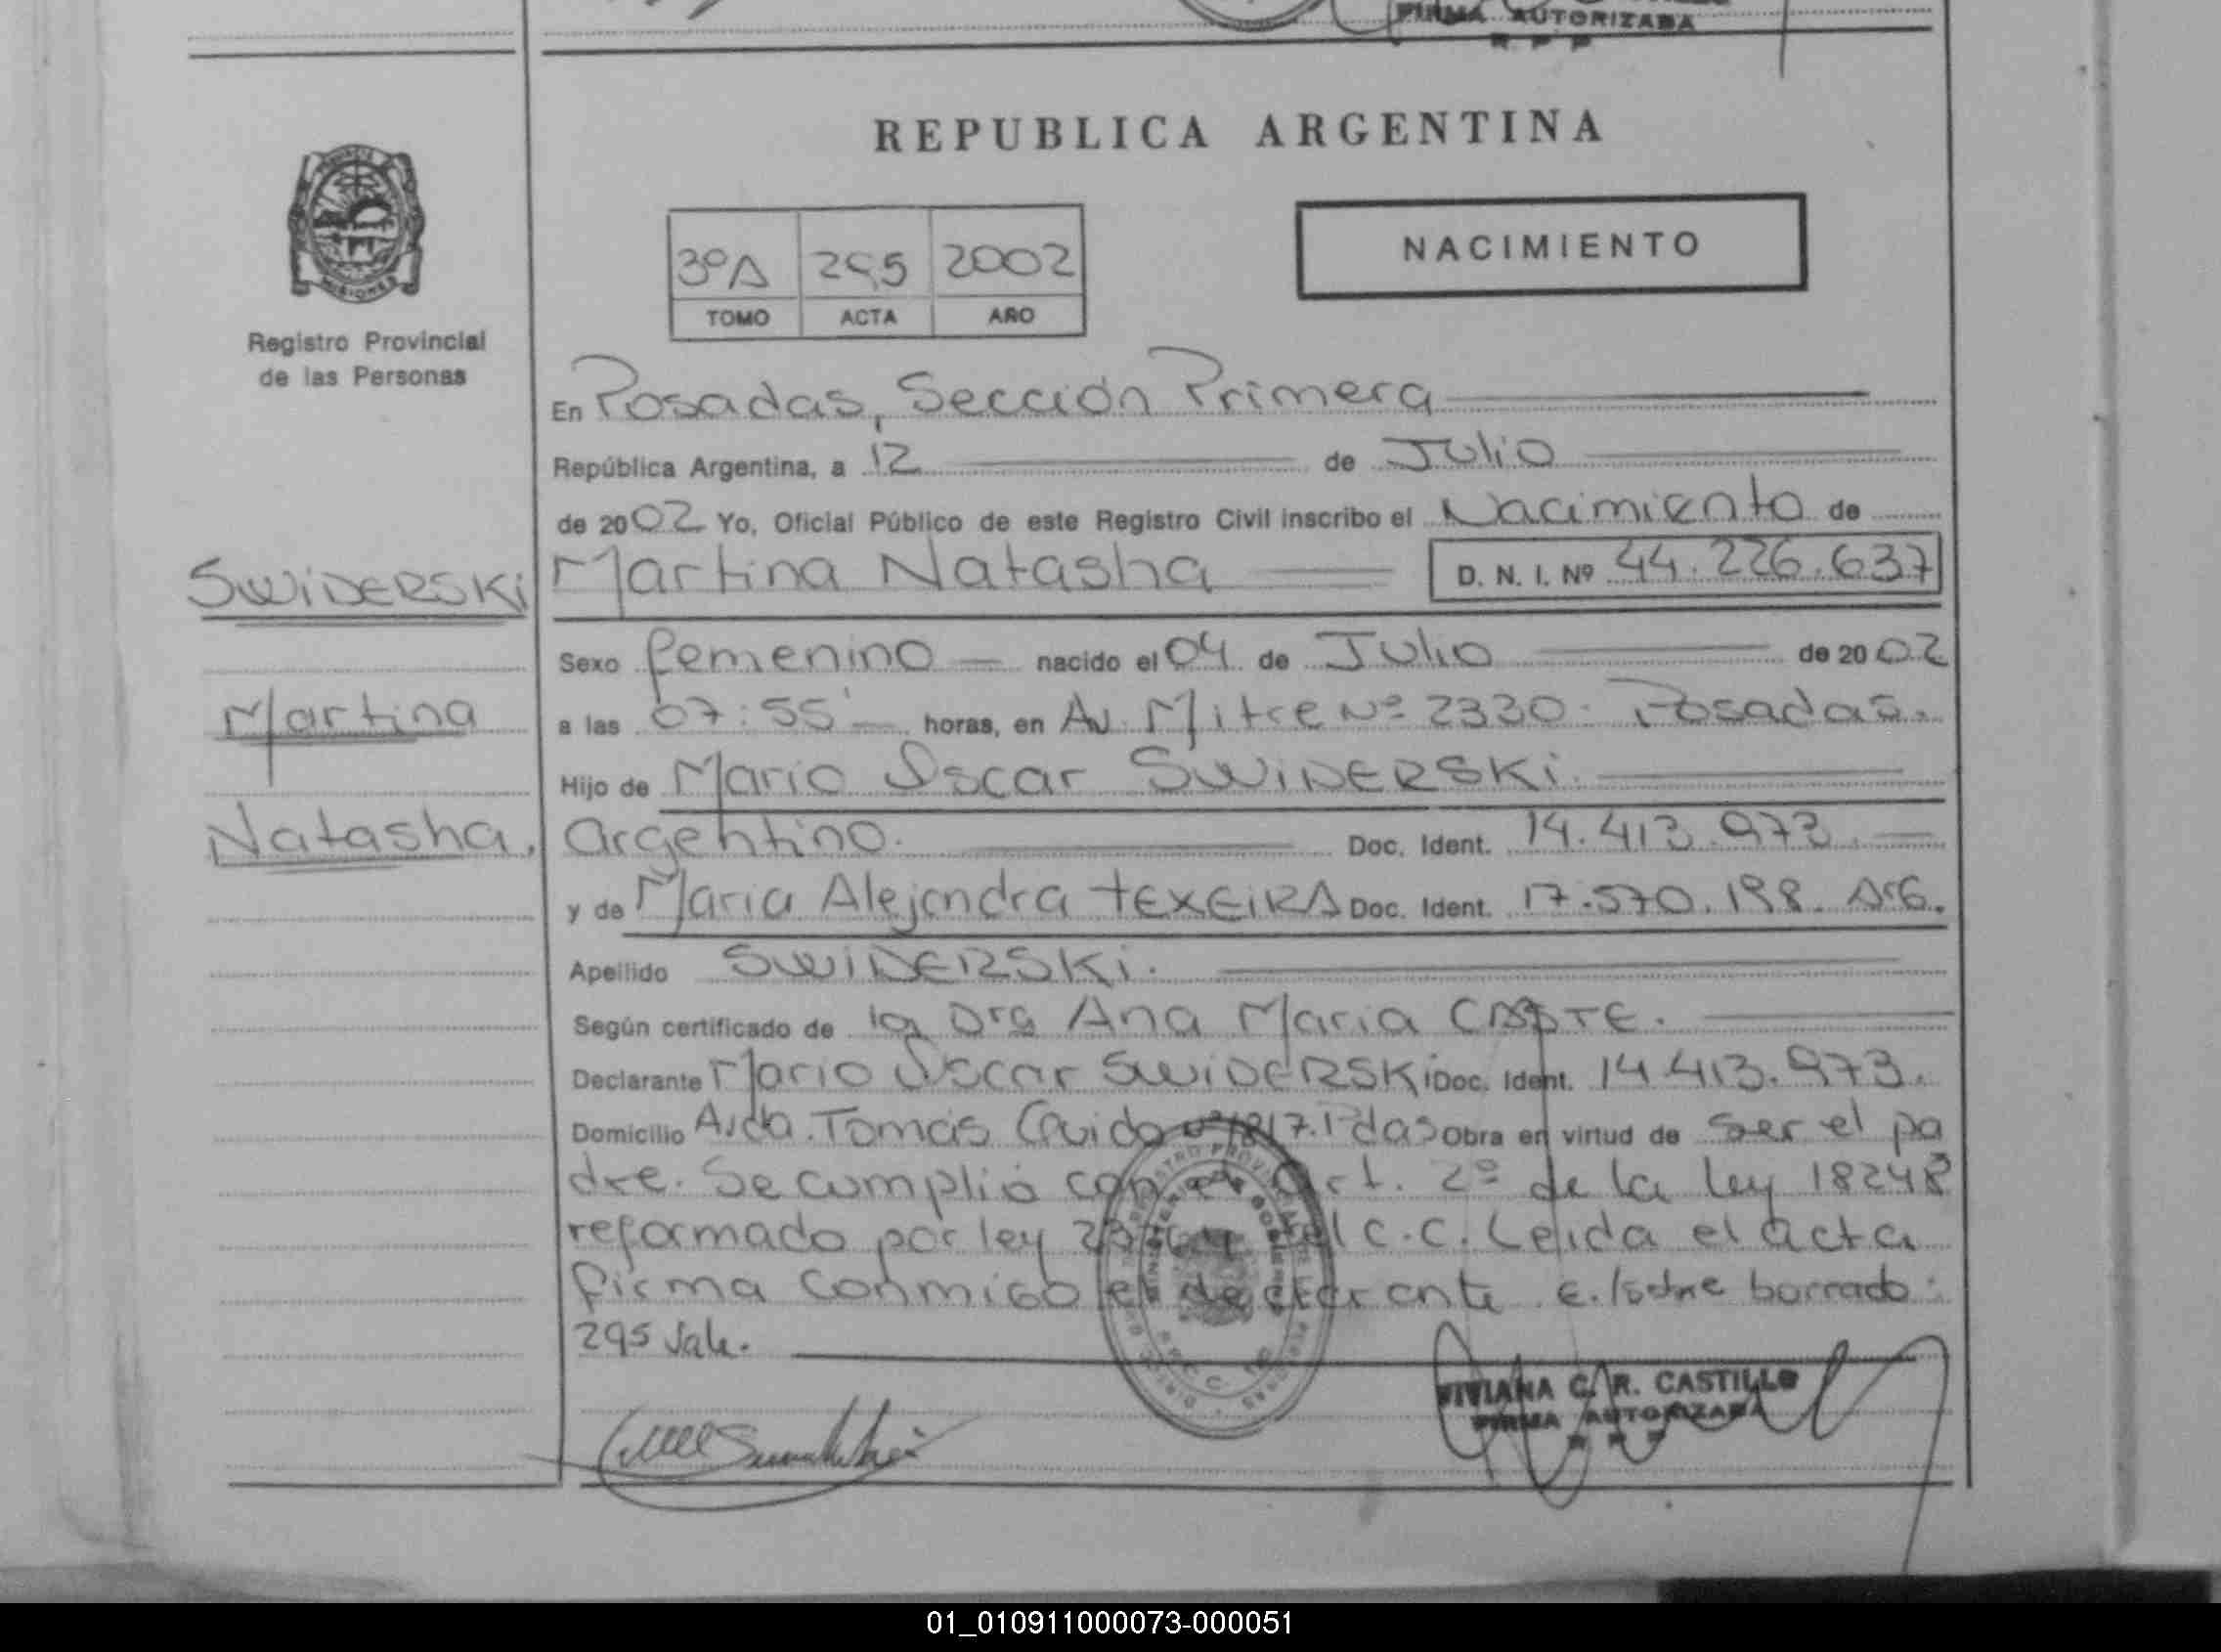 FIRMA AUTORIZADA
R P P
REPUBLICA ARGENTINA
MISIONES
Registro Provincial
de las Personas
3ºA 295 2002
TOMO ACTA AÑO
NACIMIENTO
En Posadas, Sección Primera
República Argentina, a 12 de Julio
de 2002 Yo, Oficial Público de este Registro Civil inscribo el Nacimiento de
SWIDERSKI
Martina
Natasha.
Martina Natasha D. N. I. Nº 44.226.637
Sexo femenino nacido el 04 de Julio de 2002
a las 07:55' horas, en Av. Mitre Nº 2330. Posadas.
Hijo de Mario Oscar SWIDERSKI.
Argentino. Doc. Ident. 14.413.973.
y de Maria Alejandra TEXEIRA Doc. Ident. 17.570.198. ArG.
Apellido SWIDERSKI.
Según certificado de la Dra Ana Maria
Declarante Mario Oscar SWIDERSKI Doc. Ident. 14.413.973.
Domicilio Avda. Tomás Guido Pdas Obra en virtud de ser el pa
dre. Se cumplió con el Art. 2º de la ley 18248
reformado por ley del C.C. Leida el acta
firma conmigo el declarante. E./sobre borrado:
295 Vale.
VIVIANA C. R. CASTILLO
FIRMA AUTORIZADA
R P P
01_010911000073-000051